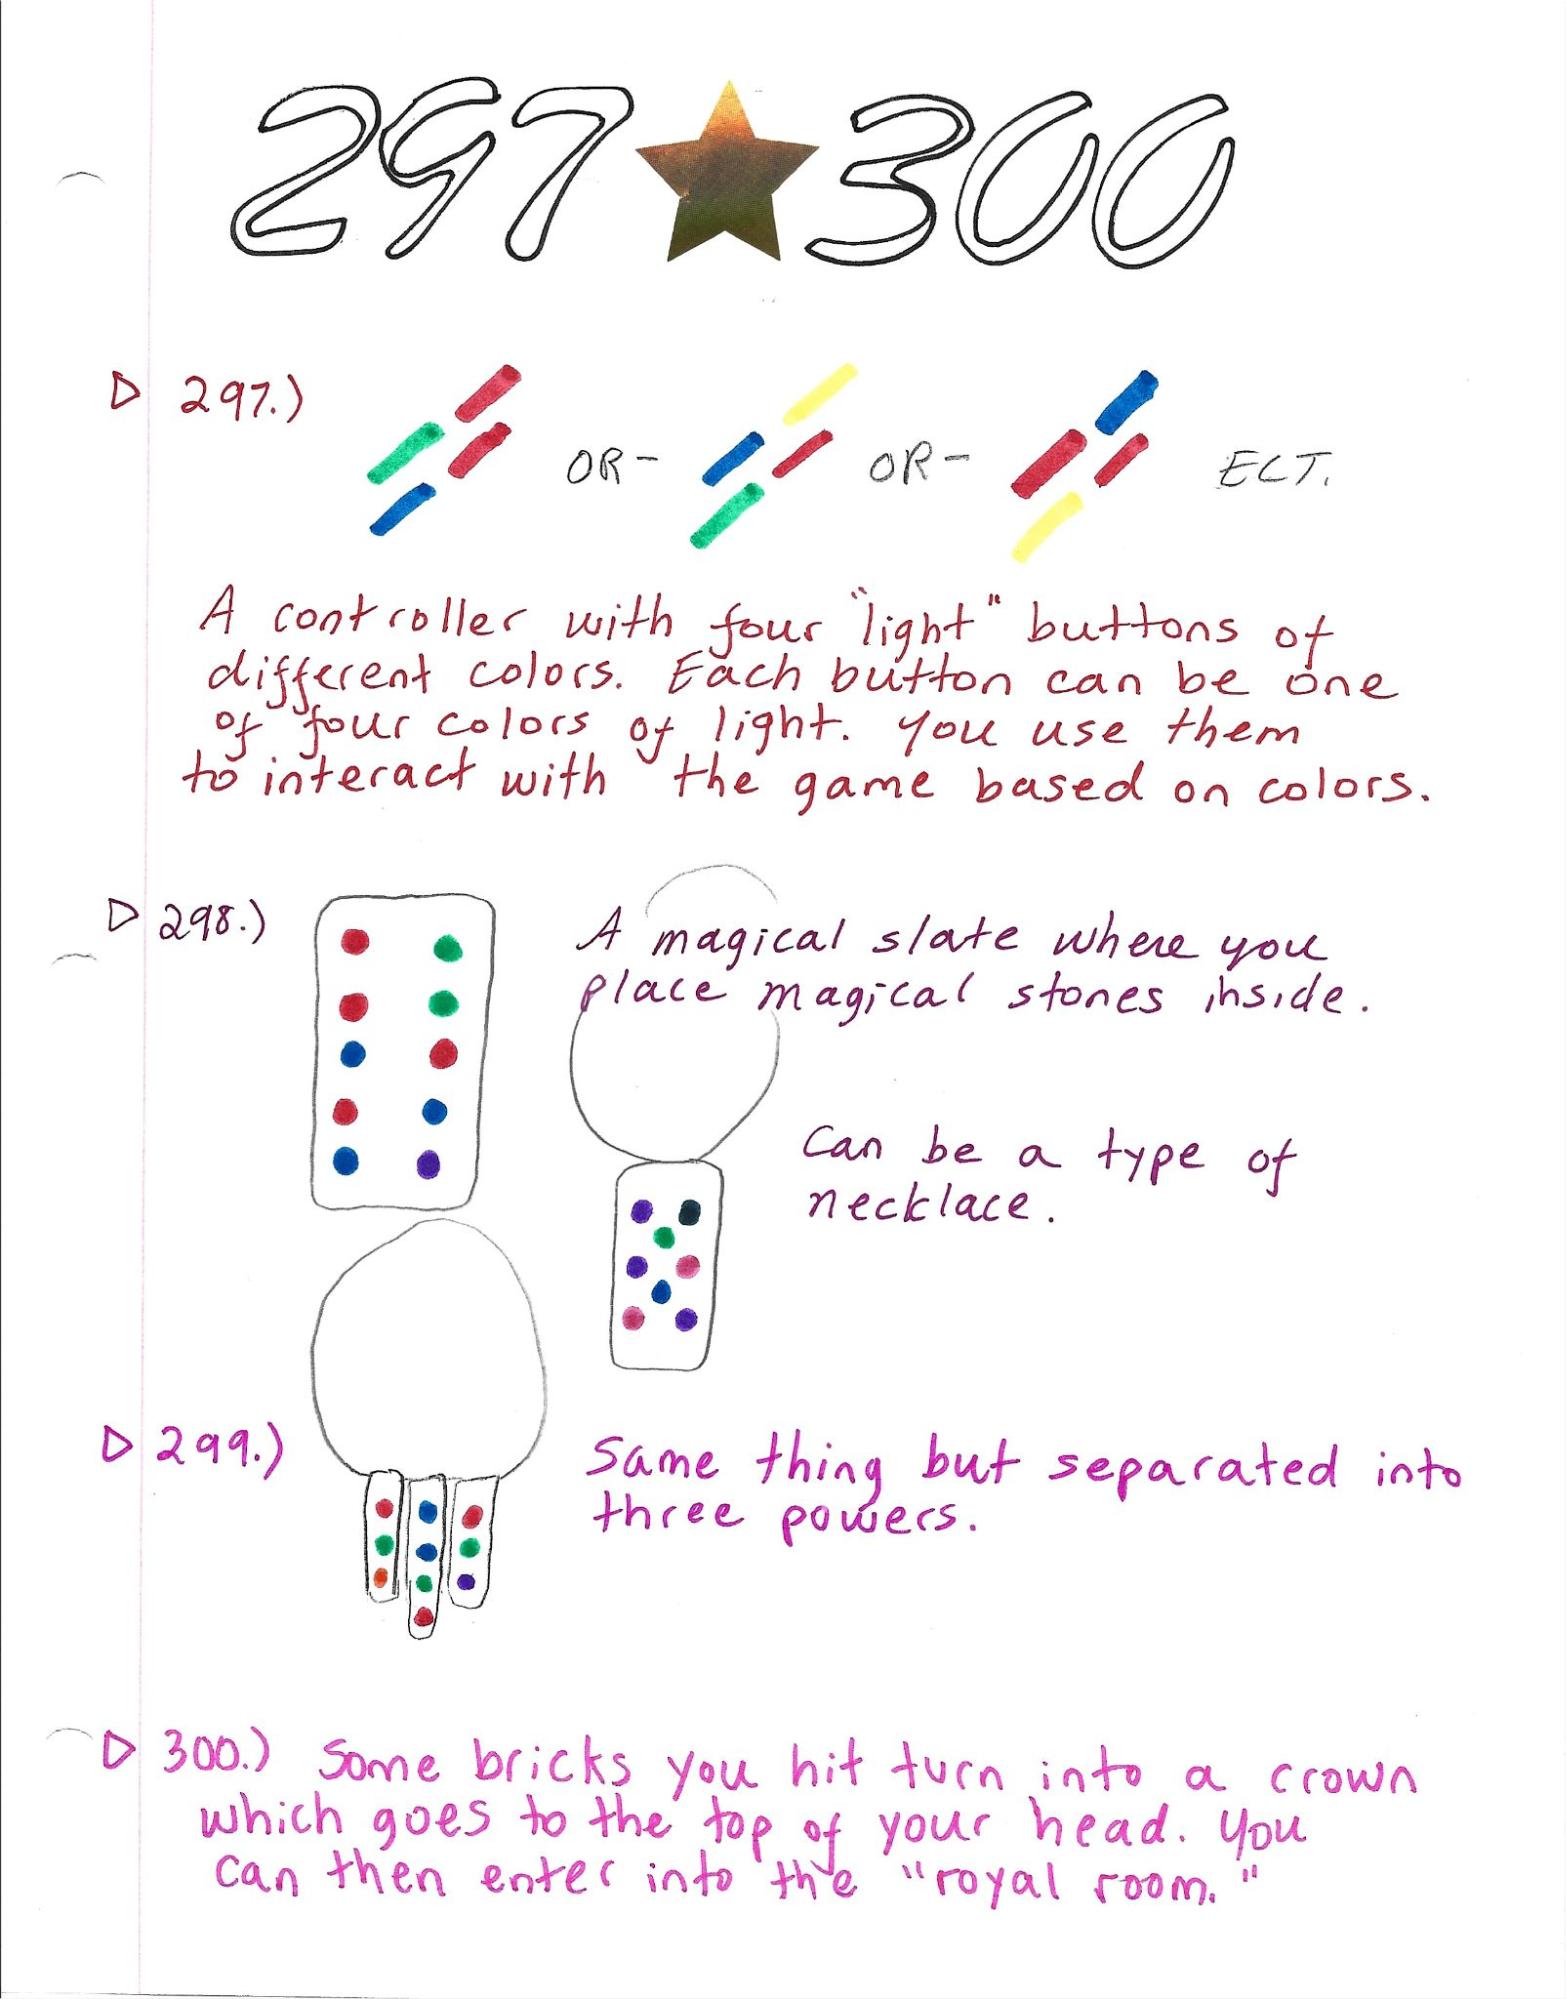 297 300
297.)
OR- OR- ECT.
A controller with four "light" buttons of
different colors. Each button can be one
of four colors of light. You use them
to interact with the game based on colors.
298.)
A magical slate where you
place magical stones inside.
Can be a type of
necklace.
299.)
Same thing but separated into
three powers.
300.) Some bricks you hit turn into a crown
which goes to the top of your head. You
can then enter into the "royal room."